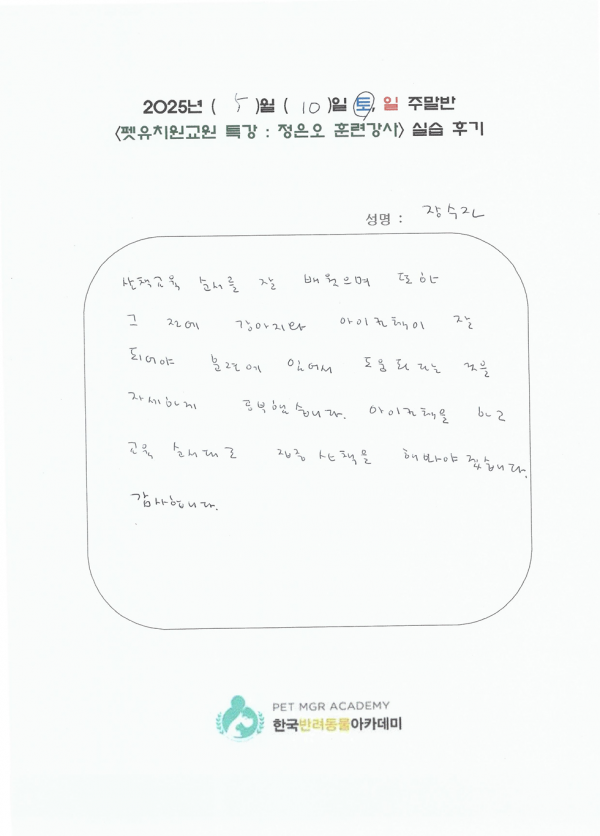 2025년 ( 5 )월 ( 10 )일 토, 일 주말반
<펫유치원교원 특강 : 정은오 훈련강사> 실습 후기
성명 : 장수진
산책교육 순서를 잘 배웠으며 또한
그 전에 강아지와 아이컨택이 잘
되어야 훈련에 있어서 도움 된다는 것을
자세하게 공부했습니다. 아이컨택을 하고
교육 순서대로 집중 산책을 해봐야겠습니다.
감사합니다.
PET MGR ACADEMY
한국반려동물아카데미